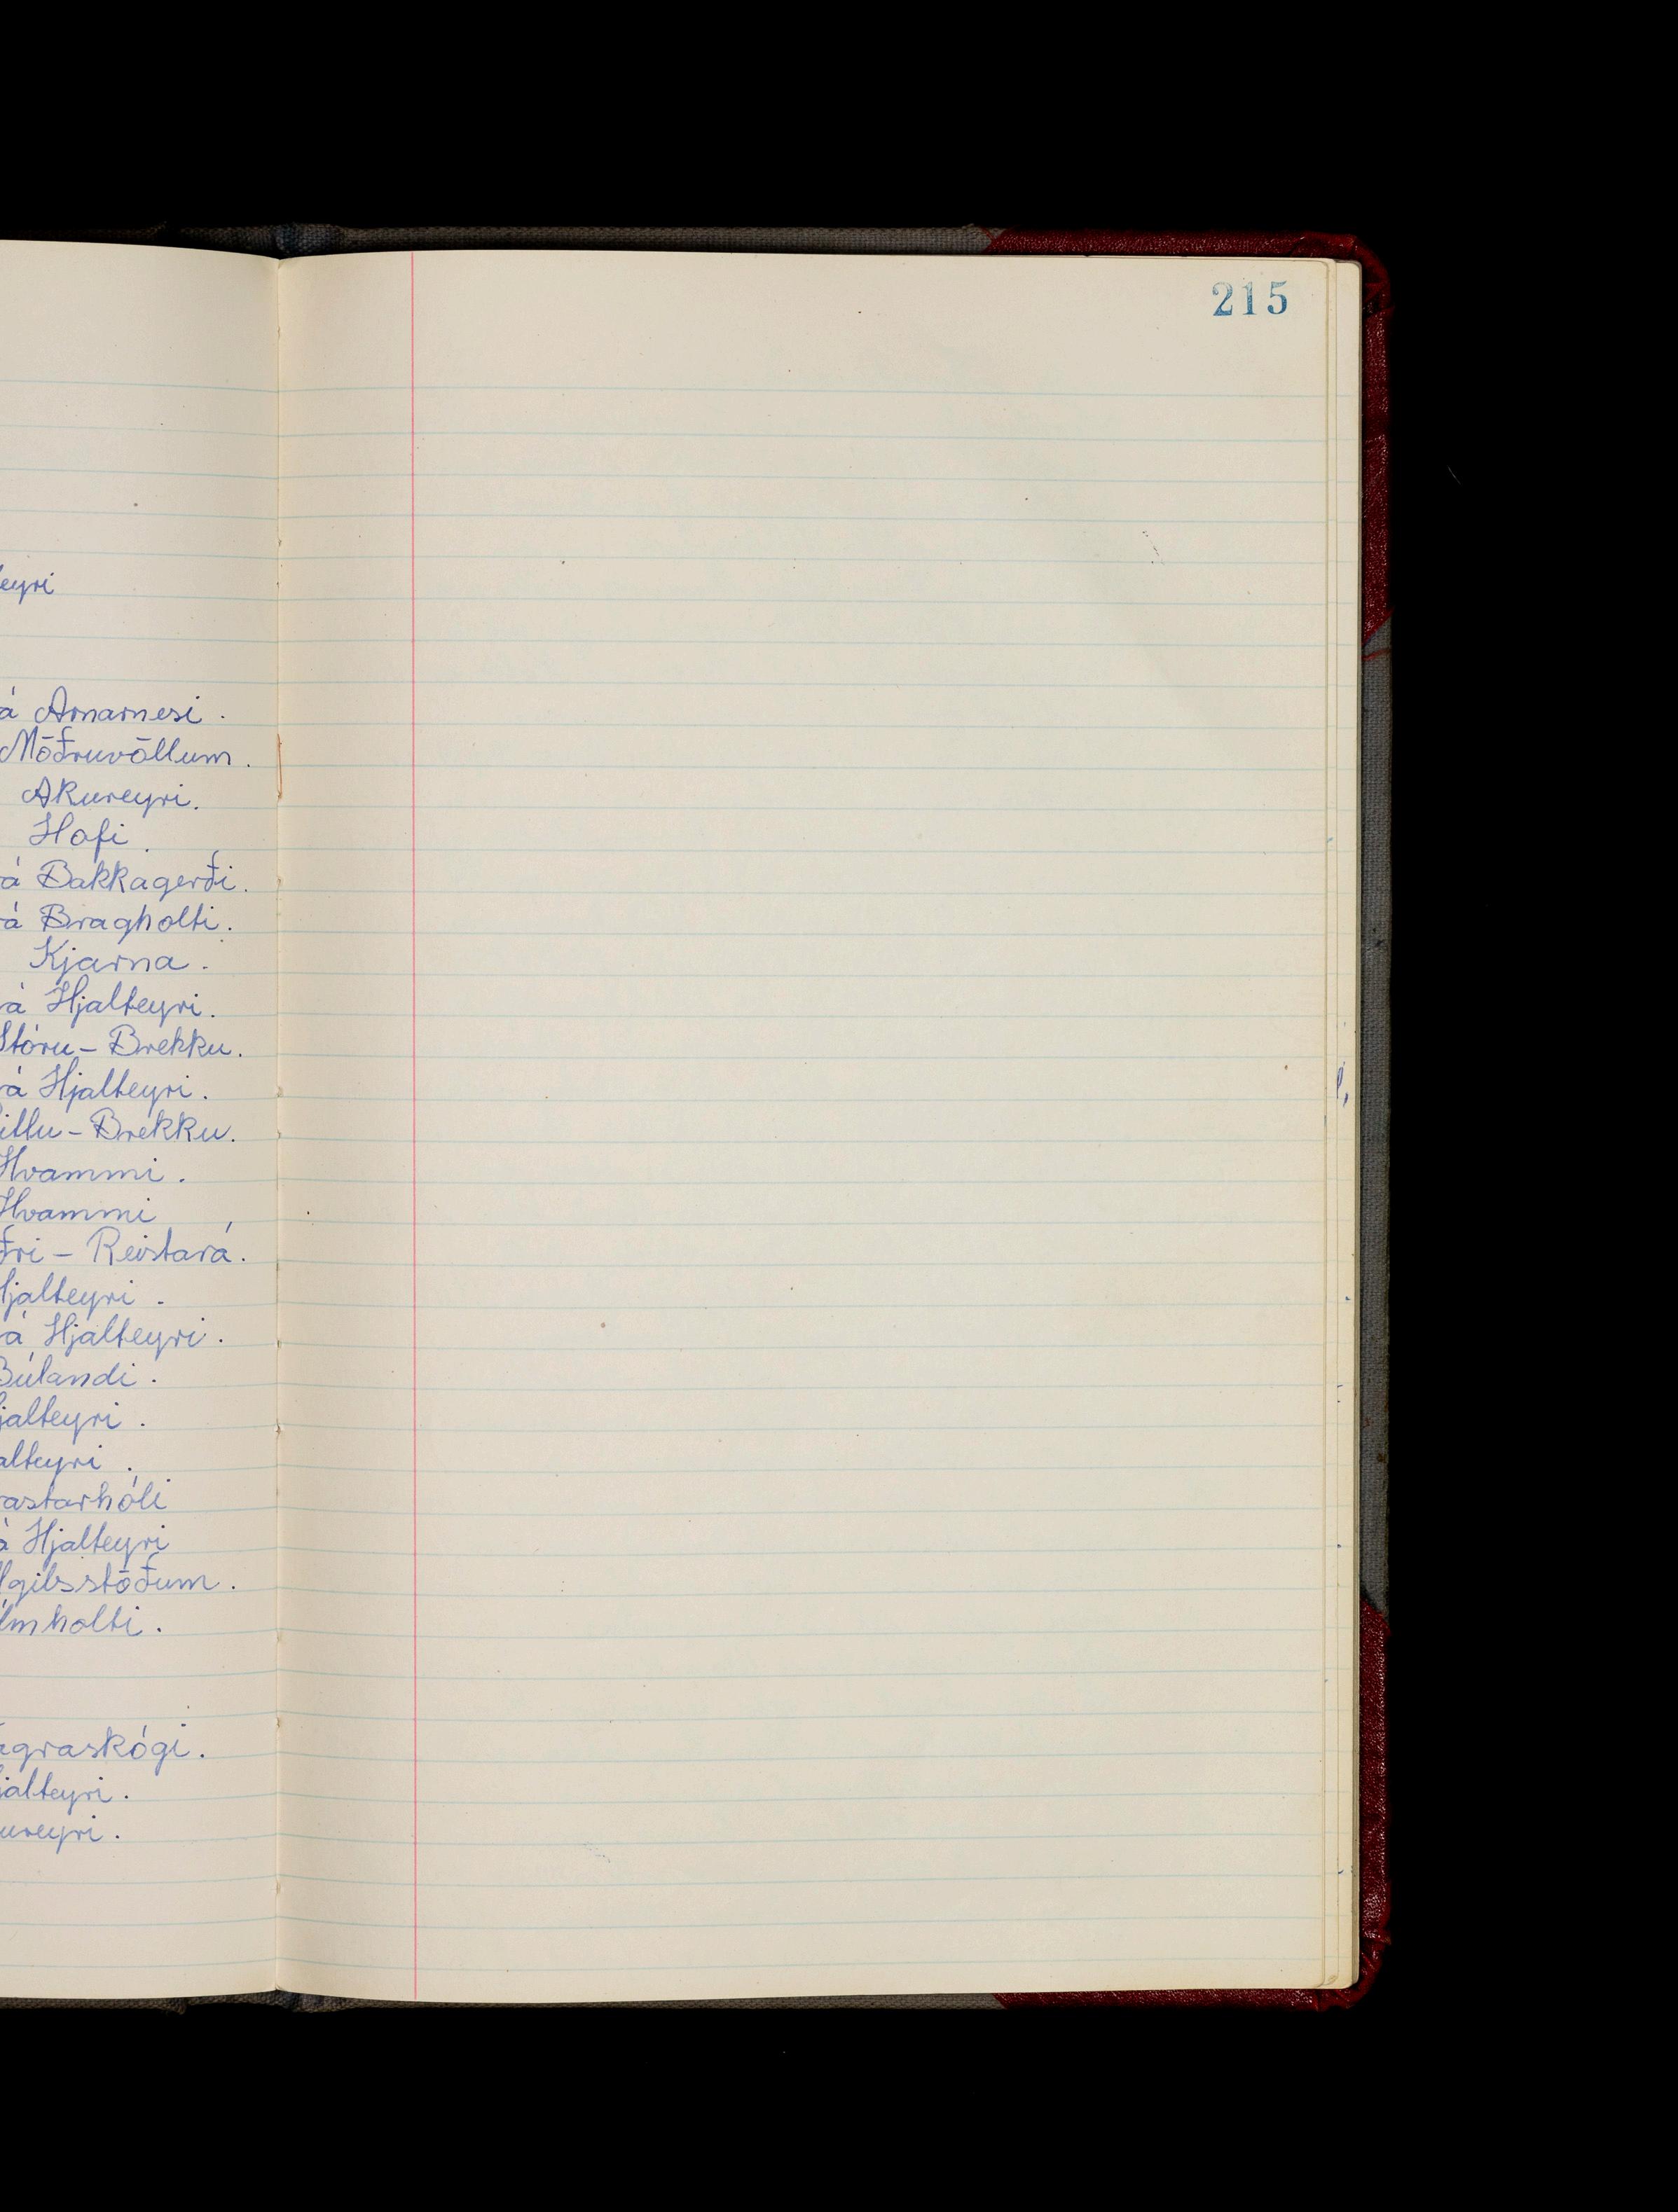 215
á Arnarnesi.
Möðruvöllum.
Akureyri.
Hofi.
á Bakkagerði.
á Bragholti.
Kjarna.
á Hjalteyri.
Stóru-Brekku.
á Hjalteyri.
Brekku.
Hvammi.
Hvammi
Reistará.
Hjalteyri.
á Hjalteyri.
Búlandi.
jalteyri.
alteyri.
astarhóli
á Hjalteyri
gilsstöðum.
lmholti.
agraskógi.
jalteyri.
ureyri.